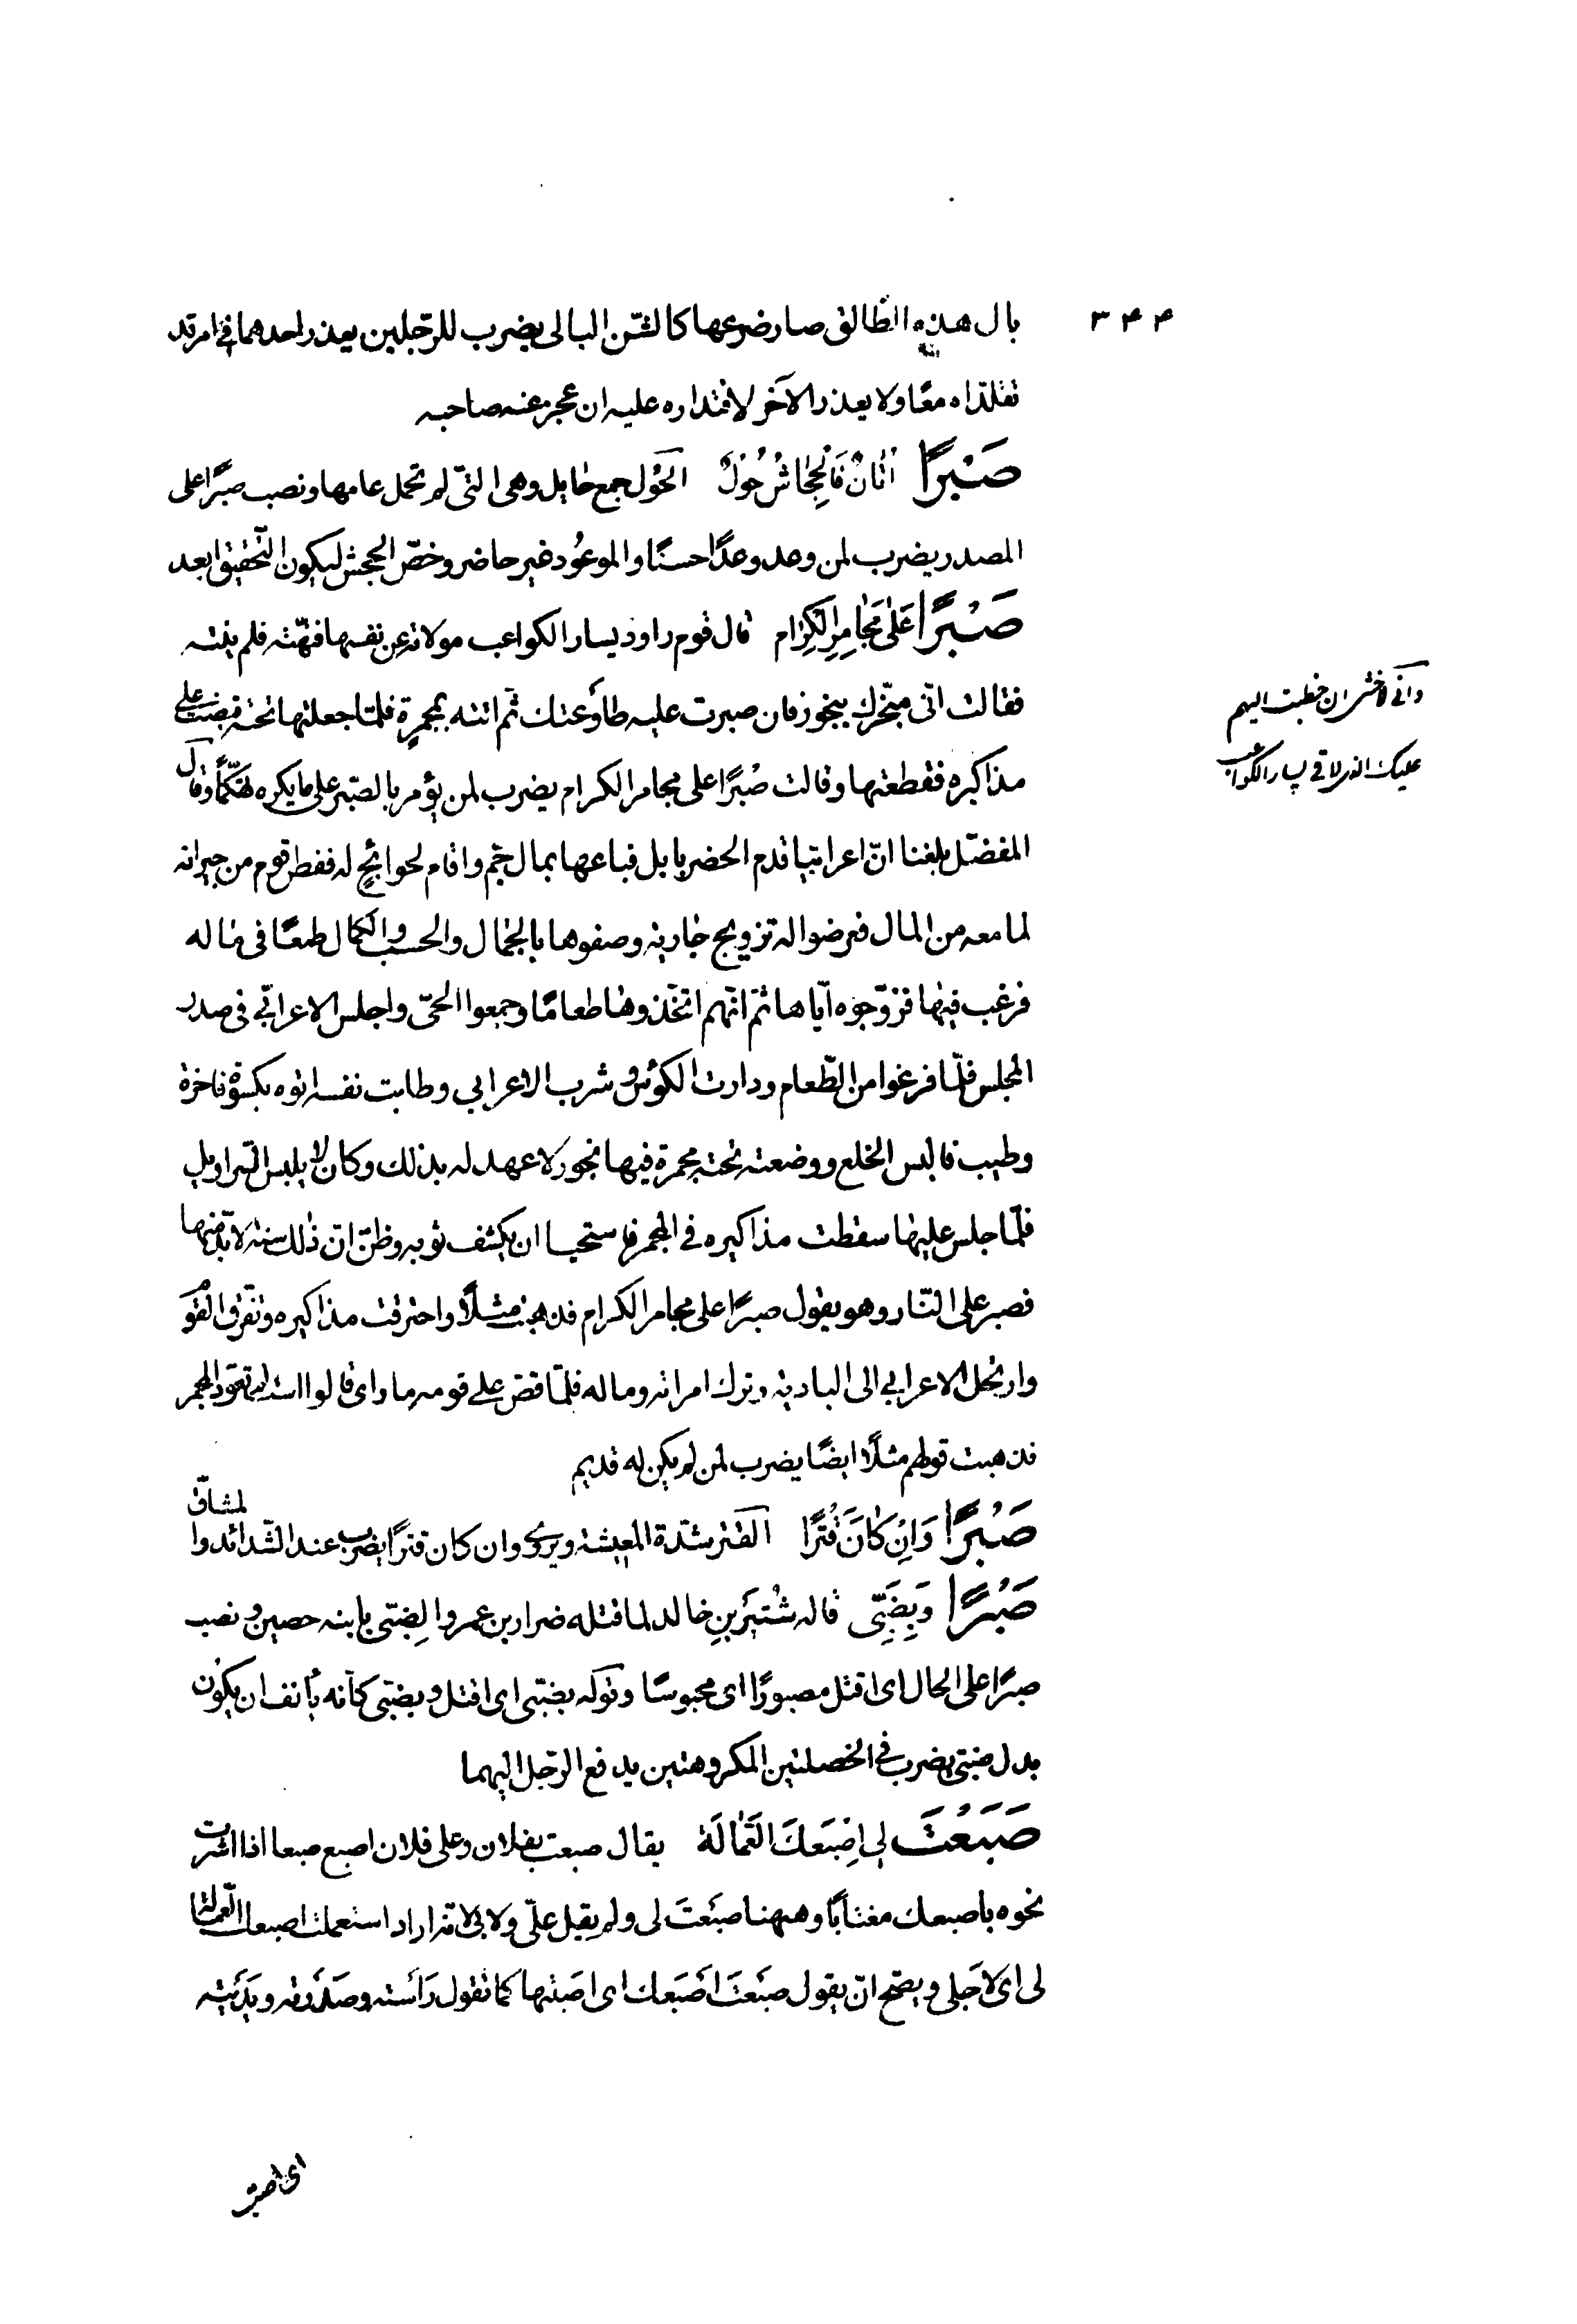 ٣٤٤
بال هذه الطالق صار ضرعها كالشن البالى يضرب للرّجلين يعذر احدهما فى امر قد
تقلّداه معًا ولا يعذر الآخر لاقتداره عليه ان عجز عنه صاحبه
صَبْرًا اَتَانُ فَالْجِحَاشُ حُوَّلٌ الحُوَّل جمع حايل وهى التى لم تحمل عامها ونصب صبرًا على
المصدر يضرب لمن وعد وعدًا حسنًا والموعُود غير حاضر وخصّ الجحش ليكون التّحقيق ابعد
صَبْرًا عَلى مَجَامِرِ الْكِرَام قال قوم راود يسار الكواعب مولاته عن نفسها فنهته فلم ينته
فقالت انّى مبخّرك ببخور فان صبرت عليه طاوَعتك ثم اتته بمجمرة فلمّا جعلتها تحته قبضت على
مذاكيره فقطعتها وقالت صبْرًا على مجامر الكرام يضرب لمن يؤمر بالصّبر على ما يكره تهكّمًا وقال
المفضّل بلغنا انّ اعرابيّا قدم الحضر بابل فباعها بمال جمّ واقام لحوائج له ففطن قوم من جيرانه
لما معه من المال فعرضوا له تزويج جارية وصفوها بالجمال والحسب والكمال طمعًا فى ماله
فرغب فيها فزوّجوه ايّاها ثمّ انّهم اتّخذوها طعامًا وجمعوا الحىّ واجلس الاعرابىّ فى صدر
المجلس فلمّا فرغوا من الطّعام ودارت الكؤس وشرب الاعرابى وطابت نفسه اتوه بكسوة فاخرة
وطيب فالبس الخلع ووضعت تحته مجمرة فيها بخور لا عهد له بذلك وكان لا يلبس السّراويل
فلمّا جلس عليها سقطت مذاكيره فى المجمر فاستحيا ان يكشف ثوبه وظنّ انّ ذلك سنة لا بدّ منها
فصبر على النّار وهو يقول صبرًا على مجامر الكرام فذهبت مثلًا واحترقت مذاكيره وتفرق القوم
وارتحل الاعرابى الى البادية وترك امراته وماله فلمّا قصّ على قومه ما راى قالوا استه لم تعوّد المجمر
فذهبت قولهم مثلًا ايضًا يضرب لمن لم يكن له قديم
صَبْرًا وَاِنْ كَانَ قَتْرًا القتر شدّة المعيشة ويروى وان كان قترًا يضرب عند الشّدائد والمشاقّ
صَبْرًا وَبِضَبِّى قاله شُتَيْر بن خالد لما قتله ضرار بن عمرو الضبّى بابنه حصين ونصب
صبرًا على الحال اى اقتل مصبورًا اى محبوسًا وقوله بضبّى اى اقتل وبضبّى كانّه يأنف ان يكون
بدل ضبّى يضرب فى الخصلتين المكروهتين يدفع الرّجل اليهما
صَبَعْتَ لِى اِصْبَعَكَ الْعَمَّالَةَ يقال صبعت بفلان وعلى فلان اصبع صبعا اذا اشرت
نحوه باصبعك مغتابًا وههنا صبَعتَ لى ولم يقل علىّ ولا بى لانّه اراد استعملت اصبعك العمّالة
لى اى لاجلى ويصح ان يقول صبَعْتَ اصْبَعك اى اصبتها كما تقول رَاَسته وصَدَرته ويَدَيته
وانّى لاخشى ان خطبت اليهم
عليك الذى لاقى يسار الكواعب
اى اصبت